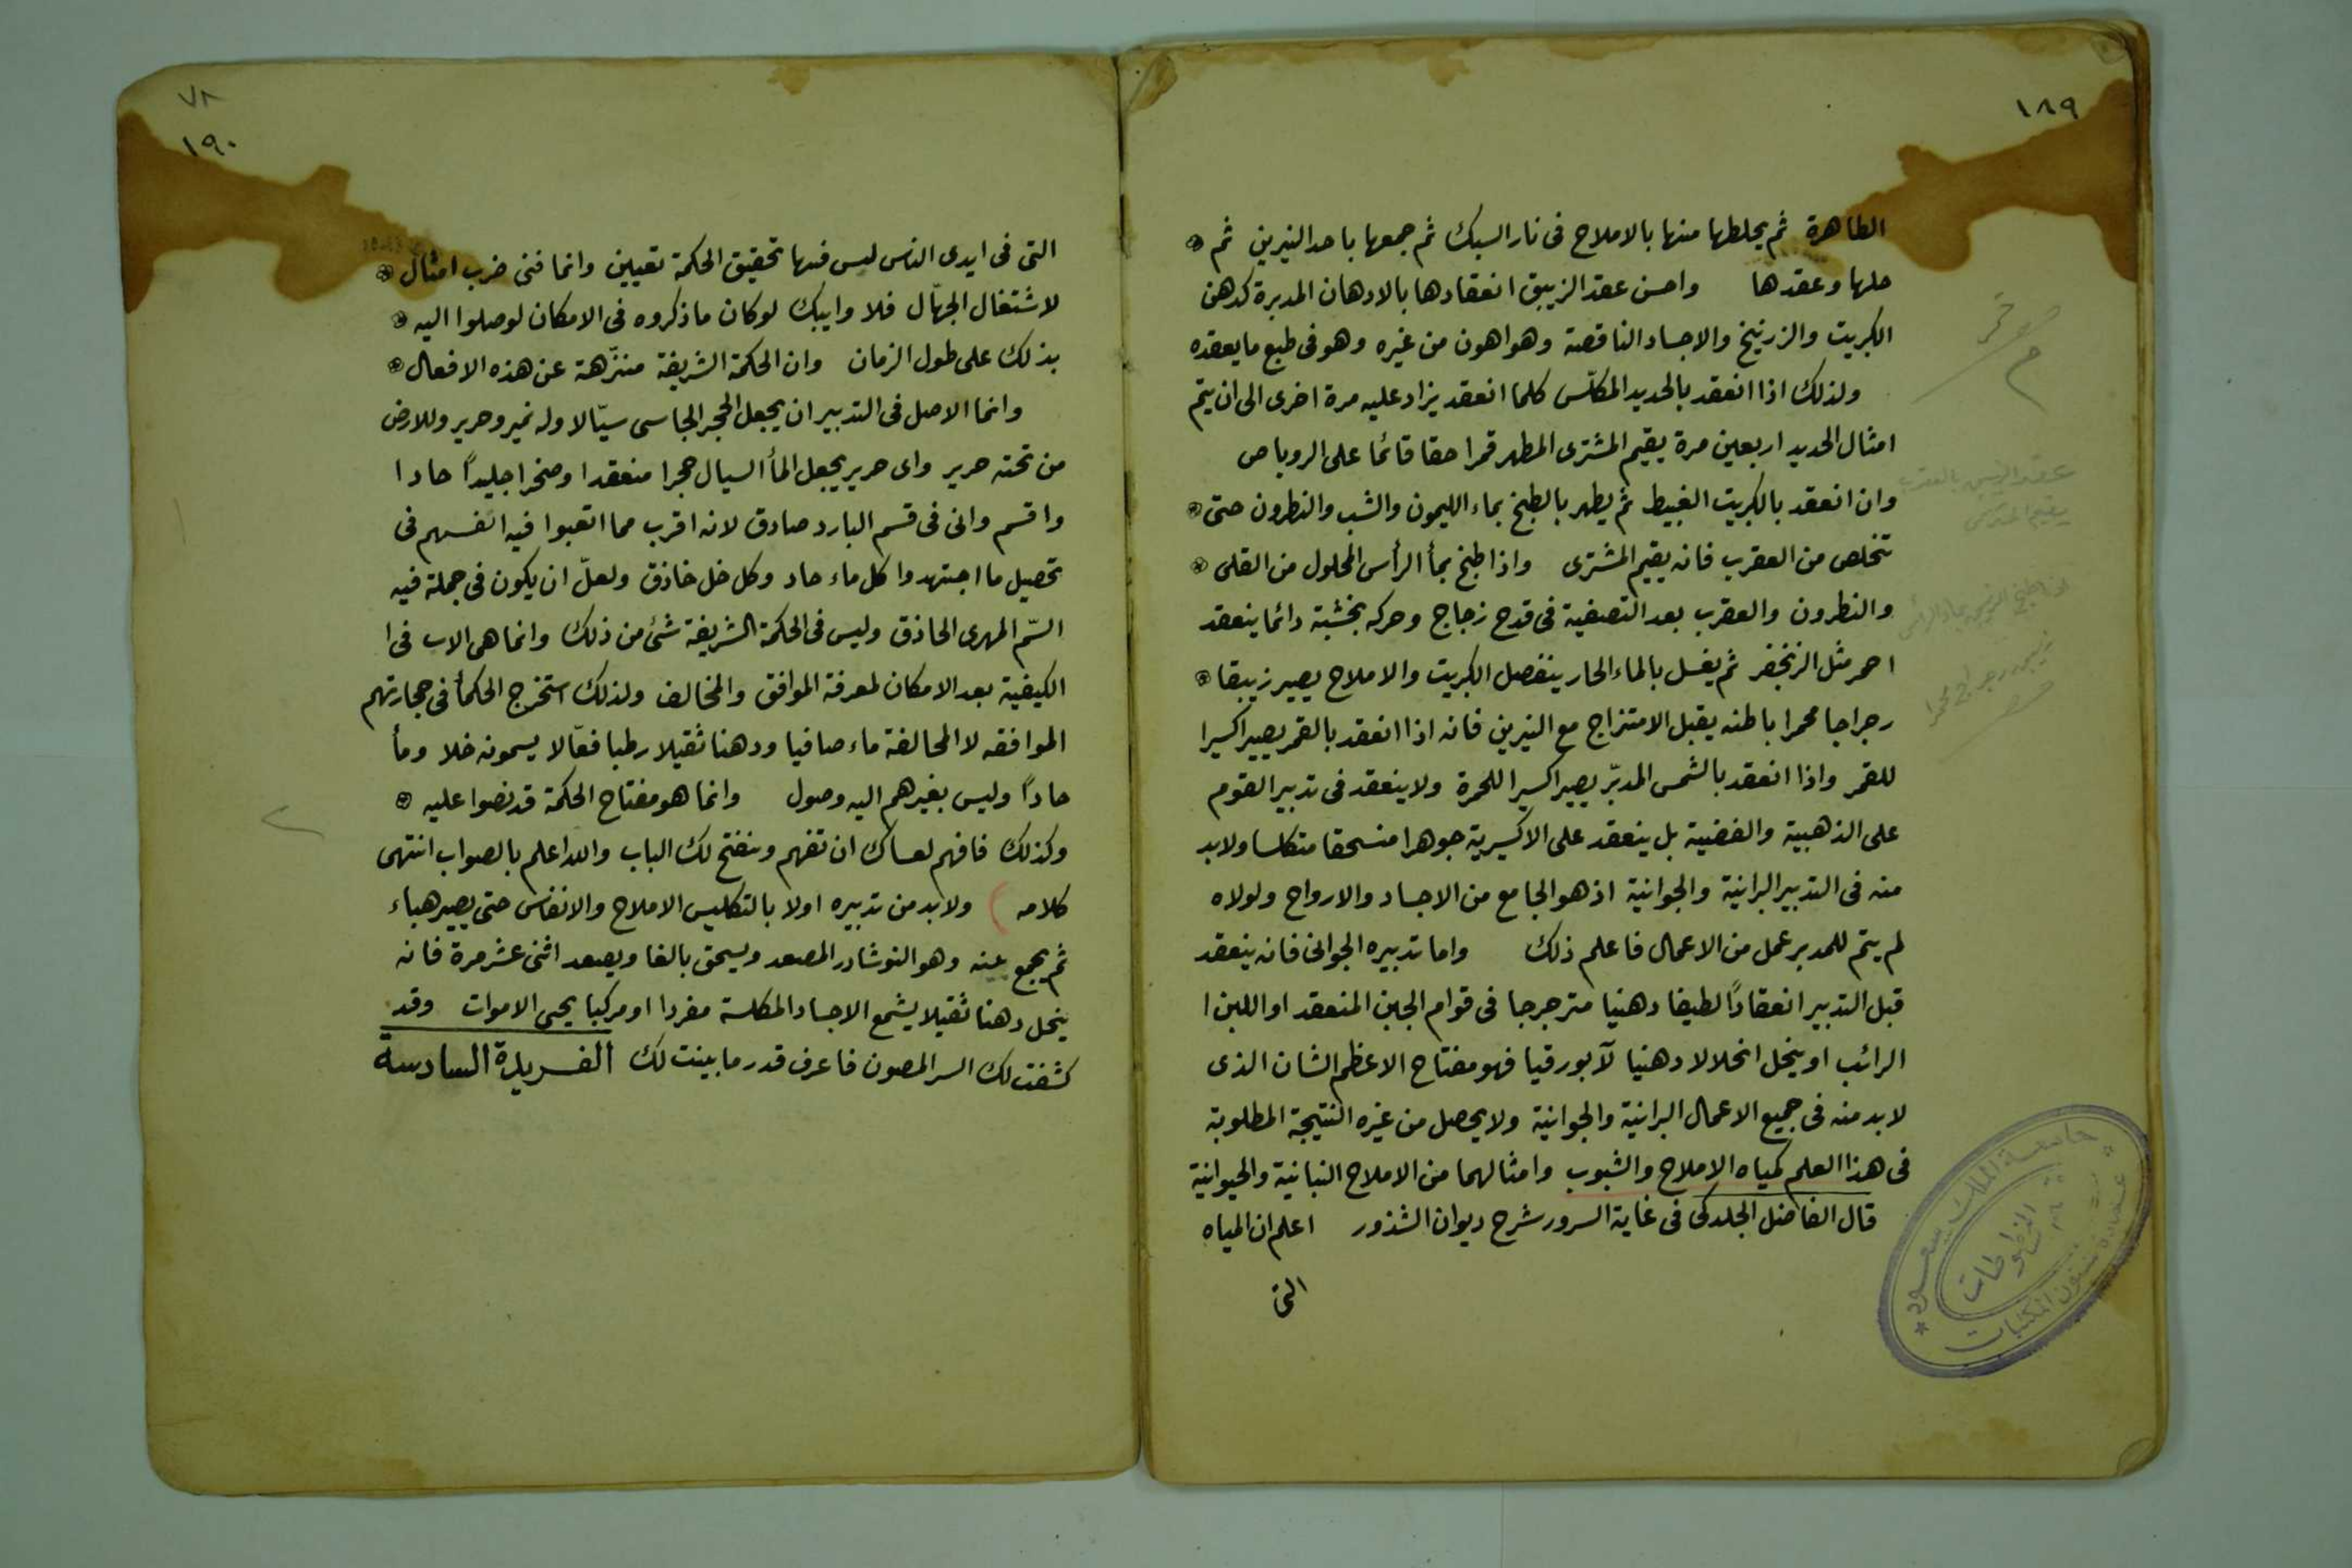 ١٨٩
الطاهرة ثم يخلطها منها بالاملاح فى نار السبك ثم جمعها باحد النيرين ثم
حلها وعقدها واحسن عقد الزيبق انعقادها بالادهان المدبرة كدهن
الكبريت والزرنيخ والاجساد الناقصة وهو اهون من غيره وهو فى طبع ما يعقده
ولذلك اذا انعقد بالحديد المكلّس كلما انعقد يزاد عليه مرة اخرى الى ان يتم
امثال الحديد اربعين مرة يقيم المشترى المطهر قمرا حقا قائما على الروباص
وان انعقد بالكبريت الغبيط ثم يطهر بالطبخ بماء الليمون والشب والنطرون حتى
تخلص من العقرب فانه يقيم المشترى واذا طبخ بمأ الرأس المحلول من القلى
والنطرون والعقرب بعد التصفية فى قدح زجاج وحركه بخشبة دائما ينعقد
احمر مثل الزنجفر ثم يغسل بالماء الحار ينفصل الكبريت والاملاح يصير زيبقا
رجراجا محمرا باطنه يقبل الامتزاج مع النيرين فانه اذا انعقد بالقمر يصير اكسيرا
للقمر واذا انعقد بالشمس المدبّر يصير اكسيرا للحمرة ولا ينعقد فى تدبير القوم
على الذهبية والفضية بل ينعقد على الاكسيرية جوهرا منسحقا متكلسا ولا بد
منه فى التدبير البرانية والجوانية اذ هو الجامع من الاجساد والارواح ولولاه
لم يتم للمدبر عمل من الاعمال فاعلم ذلك واما تدبيره الجوانى فانه ينعقد
قبل التدبير انعقادًا لطيفا دهنيا مترجرجا فى قوام الجبن المنعقد او اللبن ا
الرائب او ينحل انحلالا دهنيا لآ بورقيا فهو مفتاح الاعظم الشان الذى
لا بد منه فى جميع الاعمال البرانية والجوانية ولا يحصل من غيره النتيجة المطلوبة
فى هذا العلم كمياه الاملاح والشبوب وامثالهما من الاملاح النباتية والحيوانية
قال الفاضل الجلدكى فى غاية السرور شرح ديوان الشذور اعلم ان المياه
التى
جامعة الملك سعود
قسم المخطوطات
عمادة شئون المكتبات
٧٨
١٩٠
التى فى ايدى الناس ليس فيها تحقيق الحكمة تعيين وانما فنى ضرب امثال
لاشتغال الجهّال فلا وابيك لو كان ما ذكروه فى الامكان لوصلوا اليه
بذلك على طول الزمان وان الحكمة الشريفة منزّهة عن هذه الافعال
وانما الاصل فى التدبير ان يجعل الحجر الجاسى سيّالا وله نمير وحرير وللارض
من تحته حرير واى حرير يجعل المأ السيال حجرا منعقدا وصخرا جليدًا حادا
واقسم وانى فى قسم البارد صادق لانه اقرب مما اتعبوا فيه انفسهم فى
تحصيل ما اجتهدوا كل ماء حاد وكل خل خاذق ولعلّ ان يكون فى جملة فيه
السّم المهرى الحاذق وليس فى الحكمة الشريفة شئ من ذلك وانما هى الاب فى ا
الكيفية بعد الامكان لمعرفة الموافق والمخالف ولذلك استخرج الحكمأ فى حجارتهم
الموافقه لا المخالفة ماء صافيا ودهنا ثقيلا رطبا فعّالا يسمونه خلا ومأ
حادًا وليس بغيرهم اليه وصول وانما هو مفتاح الحكمة قد نصوا عليه
وكذلك فافهم لعساك ان تفهم وينفتح لك الباب والله اعلم بالصواب انتهى
كلامه ولا بد من تدبيره اولا بالتكليس الاملاح والانفاس حتى يصير هباء
ثم يجمع عنه وهو النوشادر المصعد ويسحق بالغا ويصعد اثنى عشر مرة فانه
ينحل دهنا ثقيلا يشمع الاجساد المكلسة مفردا او مركبا يحيى الاموات وقد
كشفت لك السر المصون فاعرف قدر ما بينت لك الفريدة السادسة